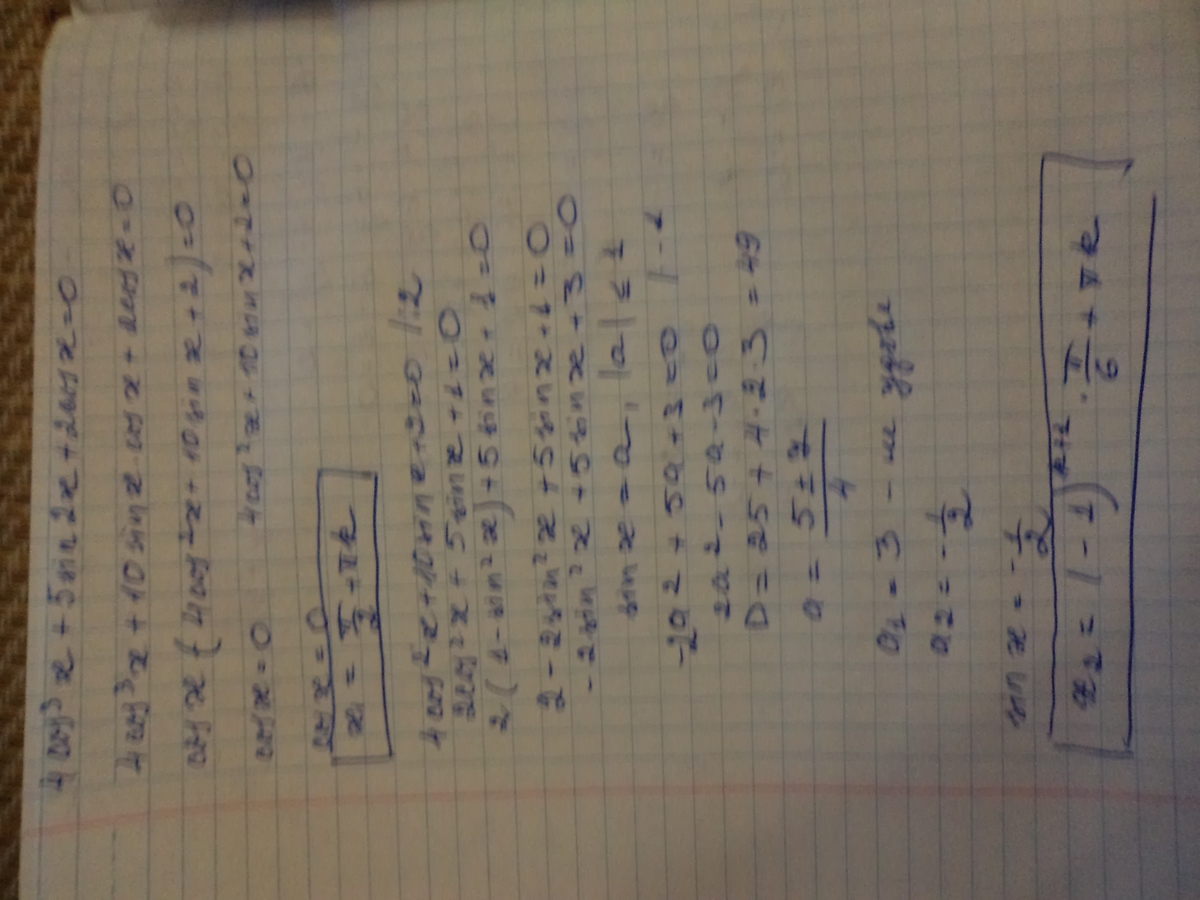 4cos³x + 5sin2x + 2cosx=0
4cos³x + 10sinx cosx + 2cosx=0
cosx (4cos²x + 10sinx + 2)=0
cosx=0 4cos²x+10sinx+2=0
cosx=0
x₁ = π/2 + πk
4cos²x+10sinx+2=0 |:2
2cos²x + 5sinx + 1=0
2(1-sin²x)+5sinx+1=0
2-2sin²x+5sinx+1=0
-2sin²x+5sinx+3=0
sinx=a, |a| ≤ 1
-2a²+5a+3=0 |·-1
2a²-5a-3=0
D=25+4·2·3=49
a = (5±7)/4
a₁=3 -
a₂=-1/2
sinx=-1/2
x₂ = (-1)ᵏ⁺¹ · π/6 + πk